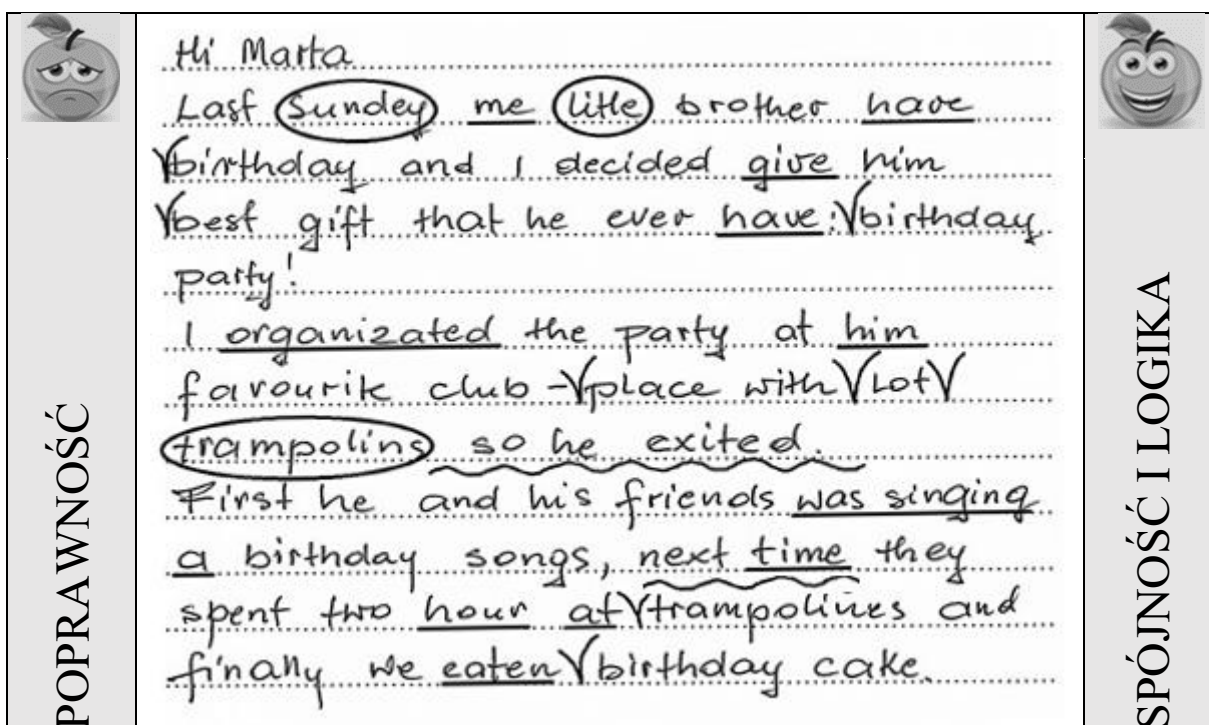 POPRAWNOŚĆ
Hi Marta
Last Sundey me litle brother have
√birthday and I decided give him
√best gift that he ever have:√birthday
party!
I organizated the party at him
favourite club -√place with √Lot√
trampolins so he exited.
First he and his friends was singing
a birthday songs, next time they
spent two hour at√trampolines and
finally we eaten √birthday cake.
SPÓJNOŚĆ I LOGIKA